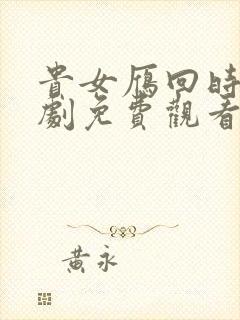 貴女雁回時
劇免費觀看
黃永